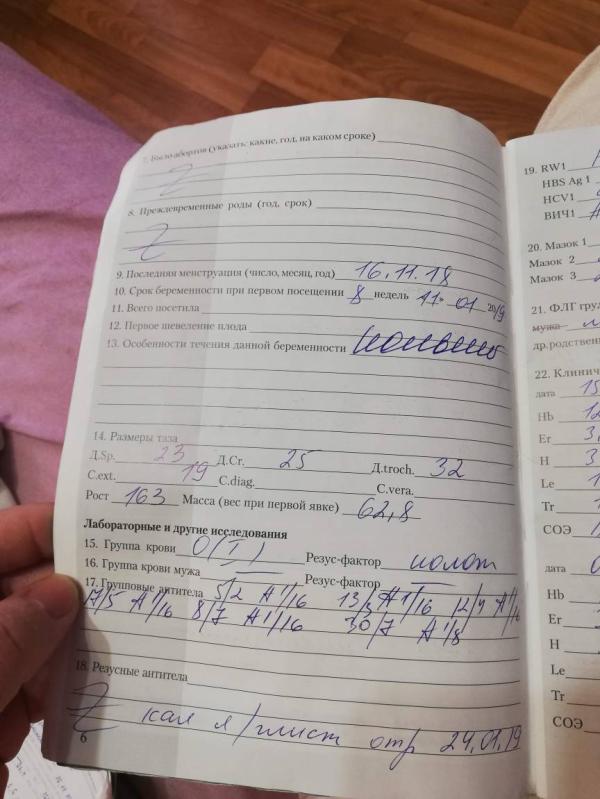 7. Было абортов (указать: какие, год, на каком сроке)
Z
8. Преждевременные роды (год, срок)
Z
9. Последняя менструация (число, месяц, год) 16.11.18
10. Срок беременности при первом посещении 8 недель 11 01 2019
11. Всего посетила
12. Первое шевеление плода
13. Особенности течения данной беременности
14. Размеры таза
Д.Sp. 23 Д.Cr. 25 Д.troch. 32
C.ext. 19 C.diag. C.vera.
Рост 163 Масса (вес при первой явке) 62,8
Лабораторные и другие исследования
15. Группа крови O(I) Резус-фактор полож
16. Группа крови мужа — Резус-фактор —
17. Групповые антитела 5/2 A 1/16 13/3 A 1/16 12/4 A 1/16
17/5 A 1/16 8/7 A 1/16 30/7 A 1/8
18. Резусные антитела
Z кал я/глист отр 24.01.19
6
19. RW1
HBS Ag 1
HCV1
ВИЧ1
20. Мазок 1
Мазок 2
Мазок 3
21. ФЛГ
мужа
др.родственн
22. Клинич
дата 15
Hb 12
Er 3,
H 3
Le 1
Tr
СОЭ
дата
Hb
Er
H
Le
Tr
СОЭ